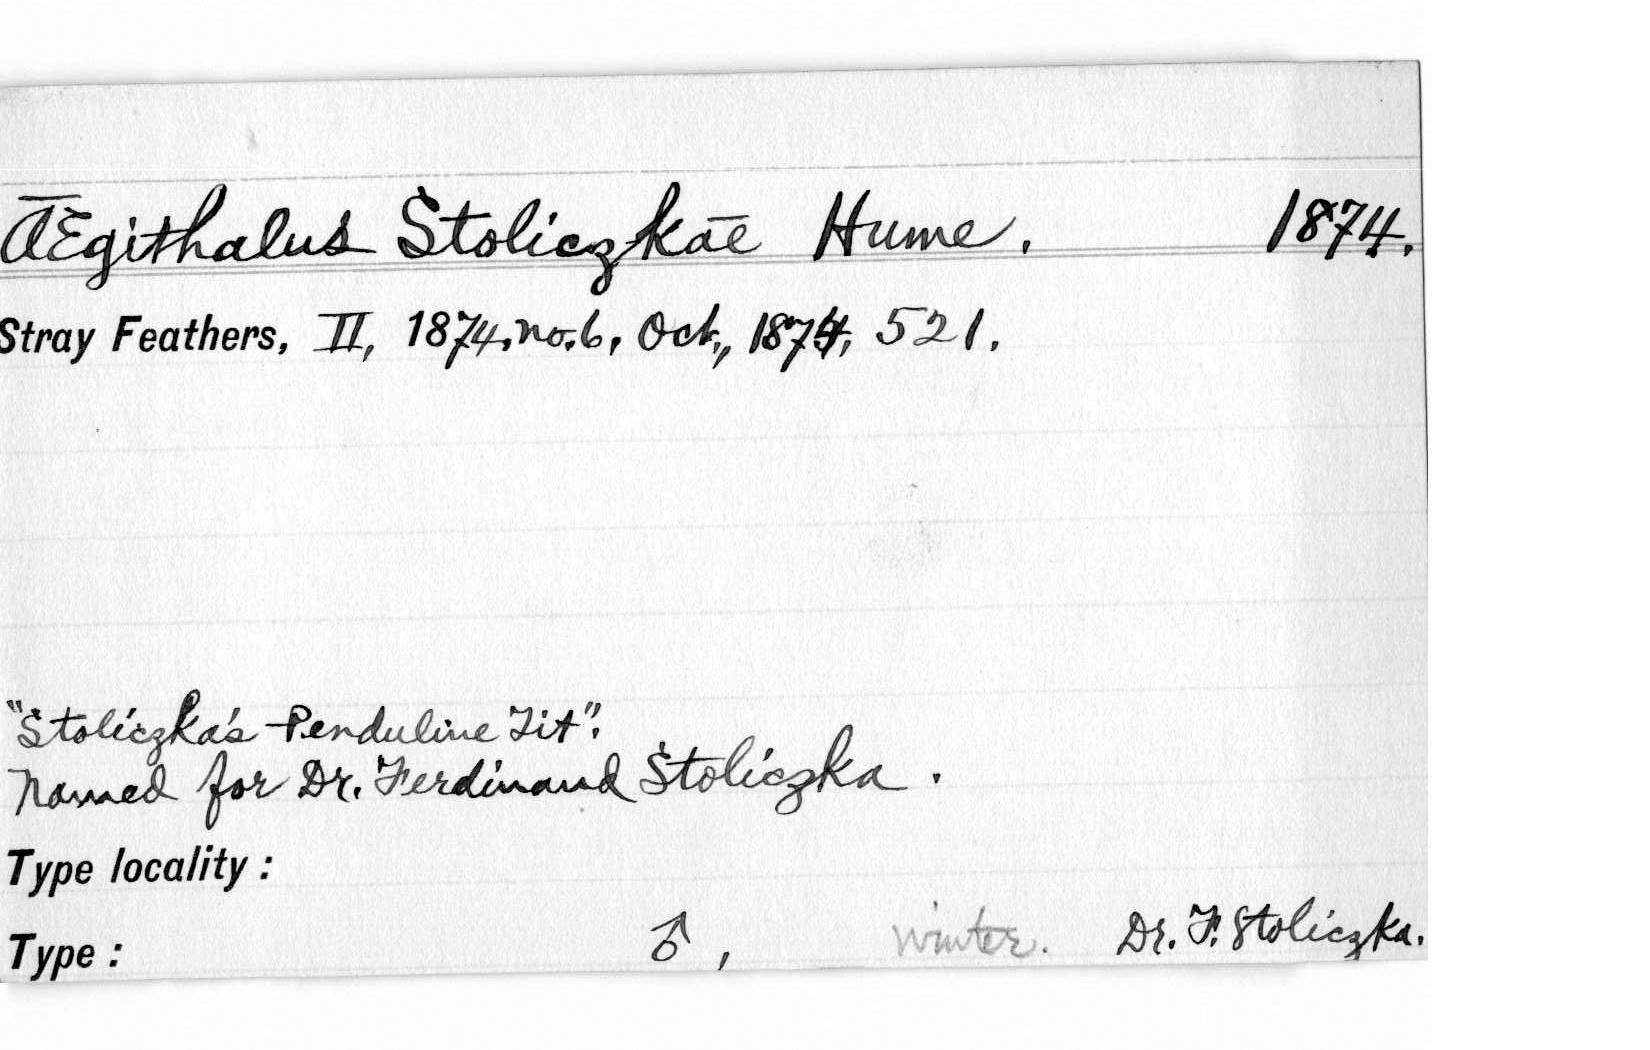 Ægithalus Stoliczkae Hume. 1874.
Stray Feathers, II, 1874, no. 6, Oct., 1874, 521.
"Stoliczka's Penduline Tit".
Named for Dr. Ferdinand Stoliczka.
Type locality :
Type : ♂, winter. Dr. F. Stoliczka.